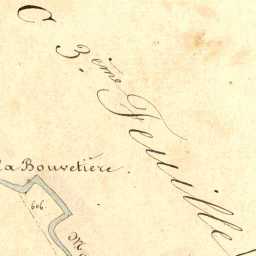 C 3.ème Feuille
la Bouvetière.
606.